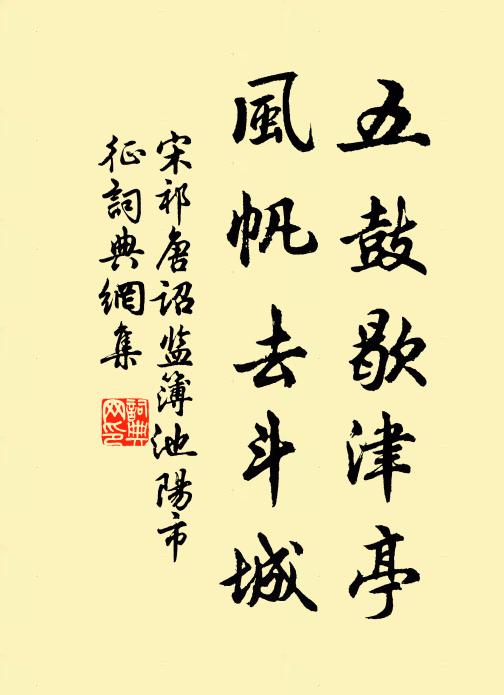 五鼓歇津亭
風帆去斗城
宋祁唐詔监簿池陽市
征詞典網集
詞典网印